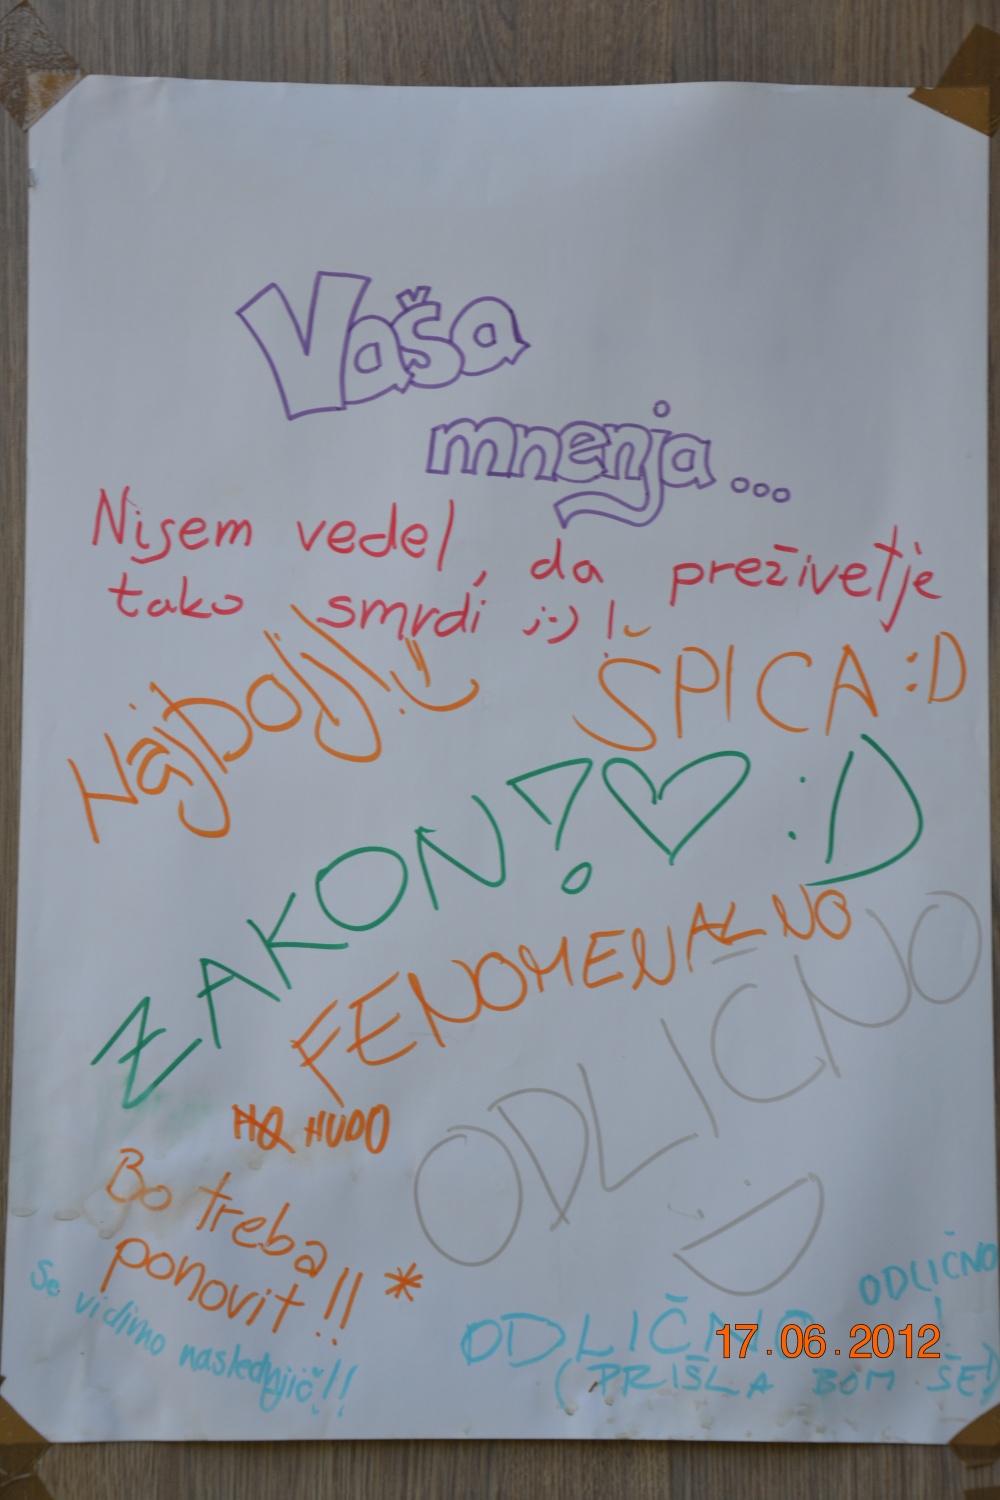 Vaša
mnenja...
Nisem vedel, da preživetje
tako smrdi ;-) !
Najbolj!
ŠPICA :D
ZAKON! ♡ :D
FENOMENALNO
ODLIČNO
:D
HUDO
Bo treba
ponovit!! *
Se vidimo naslednjič!!
ODLIČNO
!
ODLIČNO
(PRIŠLA BOM ŠE!)
17.06.2012